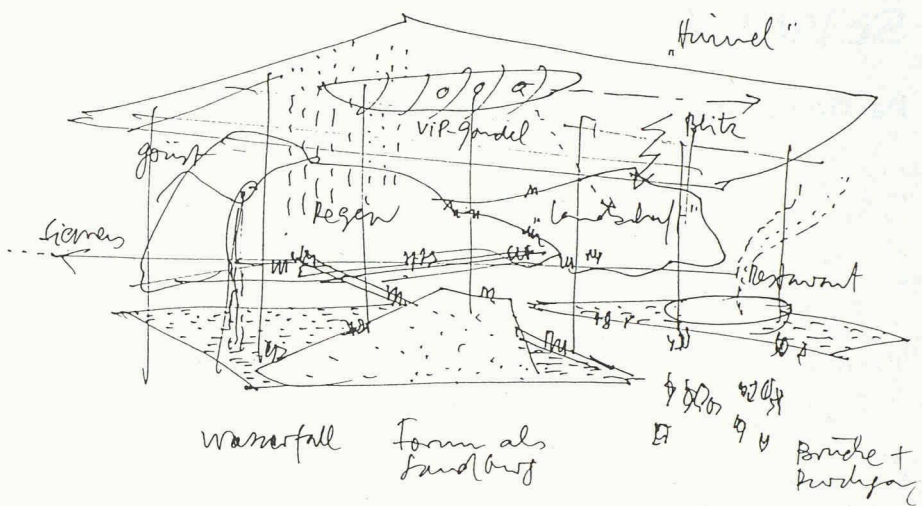 „Himmel"
VIP-Gondel
Blitz
Regen
Landschaft"
Siemens
Restaurant
Wasserfall
Forum als
Sandburg
Brücke +